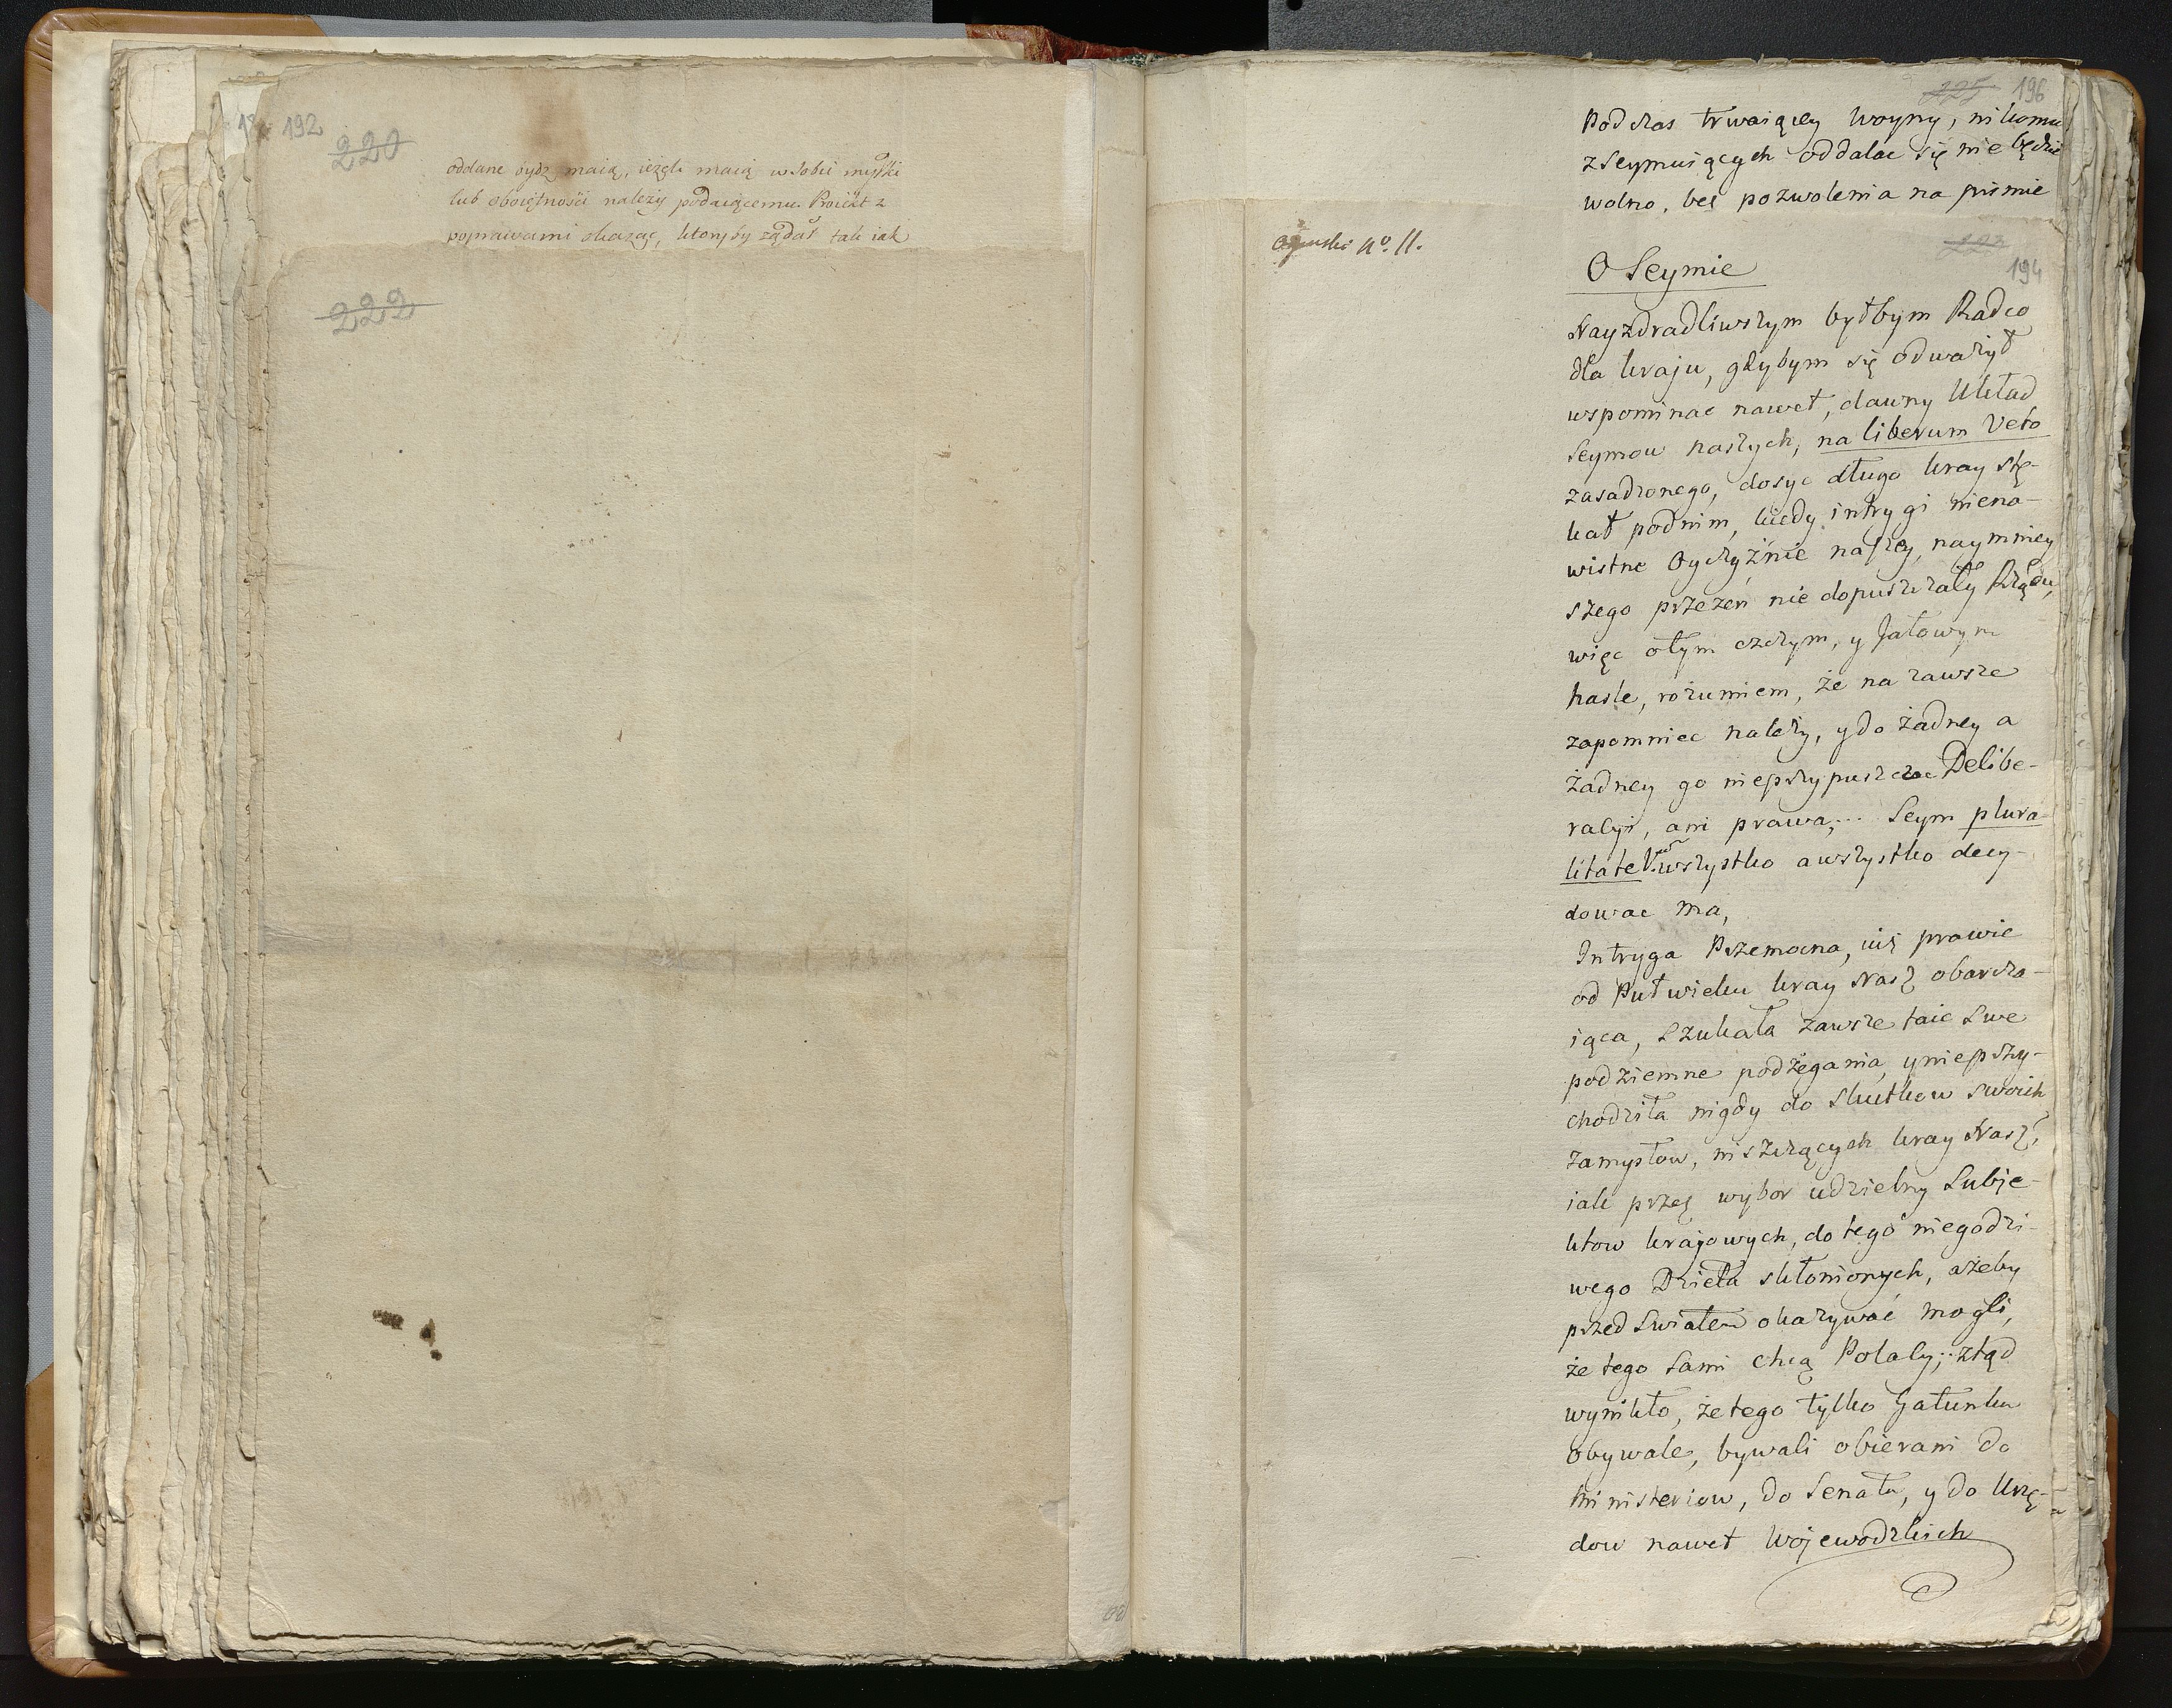 192
220
oddane bydz maią, ieżeli maią w sobie myłki
lub oboiętności należy podaiącemu Proiekt z
poprawami okazac, ktoryby żądał tak iak
222
225 196
Podczas trwaiącey woyny, nikomu
z Seymuiących oddalac się nie będzie
wolno, bez pozwolenia na pismie
No. 11.
194
O Seymie
Nayzdradliwszym byłbym Radcą
dla kraju, gdybym się odważył
wspominac nawet, dawny Układ
Seymow naszych, na liberum Veto
zasadzonego, dosyc długo kray stę-
kał pod nim, kiedy intrygi niena-
wistne Oyczyźnie naszey, naymniey
szego przezeń nie dopuszczały Rządu,
więc o tym czczym, y Jałowym
hasle, rozumiem, że na zawsze
zapomniec należy, y do żadney a
żadney go nieprzypuszczac Delibe-
racyi, ani prawa,... Seym plura-
litate V. wszystko a wszystko decy-
dowac ma,
Intryga Przemocna, iuż prawie
od Puł wieku kray Nasz obarcza-
iąca, Szukała zawsze taic Swe
podziemne podżegania, y nieprzy-
chodziła nigdy do Skutkow Swoich
zamysłow, niszczących kray Nasz,
iak przez wybor udzielny Subje-
ktow krajowych, do tego niegodzi-
wego Dzieła skłonionych, ażeby
przed Swiatem okazywać mogli,
że tego Sami chcą Polacy;.. ztąd
wynikło, że tego tylko Gatunku
Obywate, bywali obierani do
Ministeriow, do Senatu, y do Urzę-
dow nawet Wojewodzkich